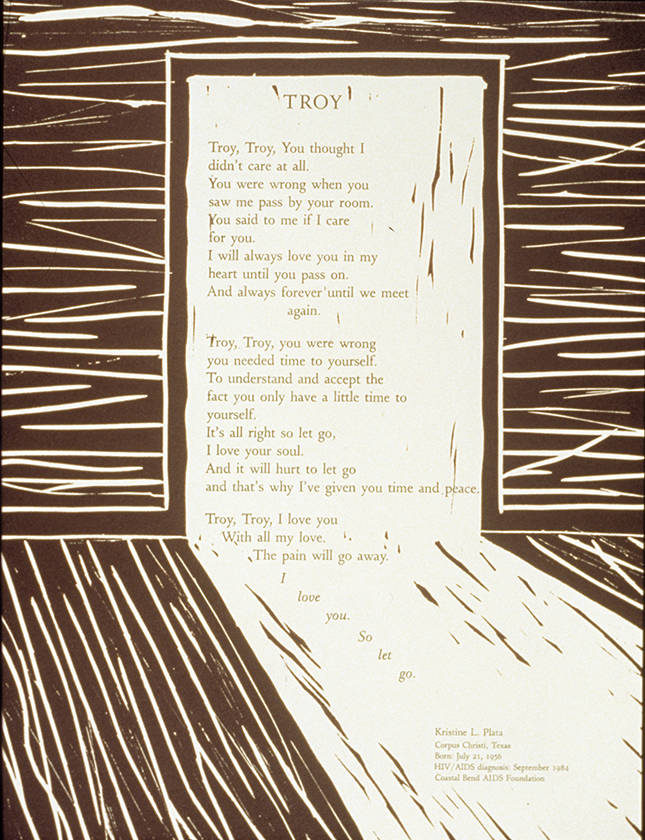 TROY
Troy, Troy, You thought I
didn't care at all.
You were wrong when you
saw me pass by your room.
You said to me if I care
for you.
I will always love you in my
heart until you pass on.
And always forever until we meet
again.
Troy, Troy, you were wrong
you needed time to yourself.
To understand and accept the
fact you only have a little time to
yourself.
It's all right so let go,
I love your soul.
And it will hurt to let go
and that's why I've given you time and peace.
Troy, Troy, I love you
With all my love.
The pain will go away.
I
love
you.
So
let
go.
Kristine L. Plata
Corpus Christi, Texas
Born: July 21, 1956
HIV/AIDS diagnosis: September 1984
Coastal Bend AIDS Foundation